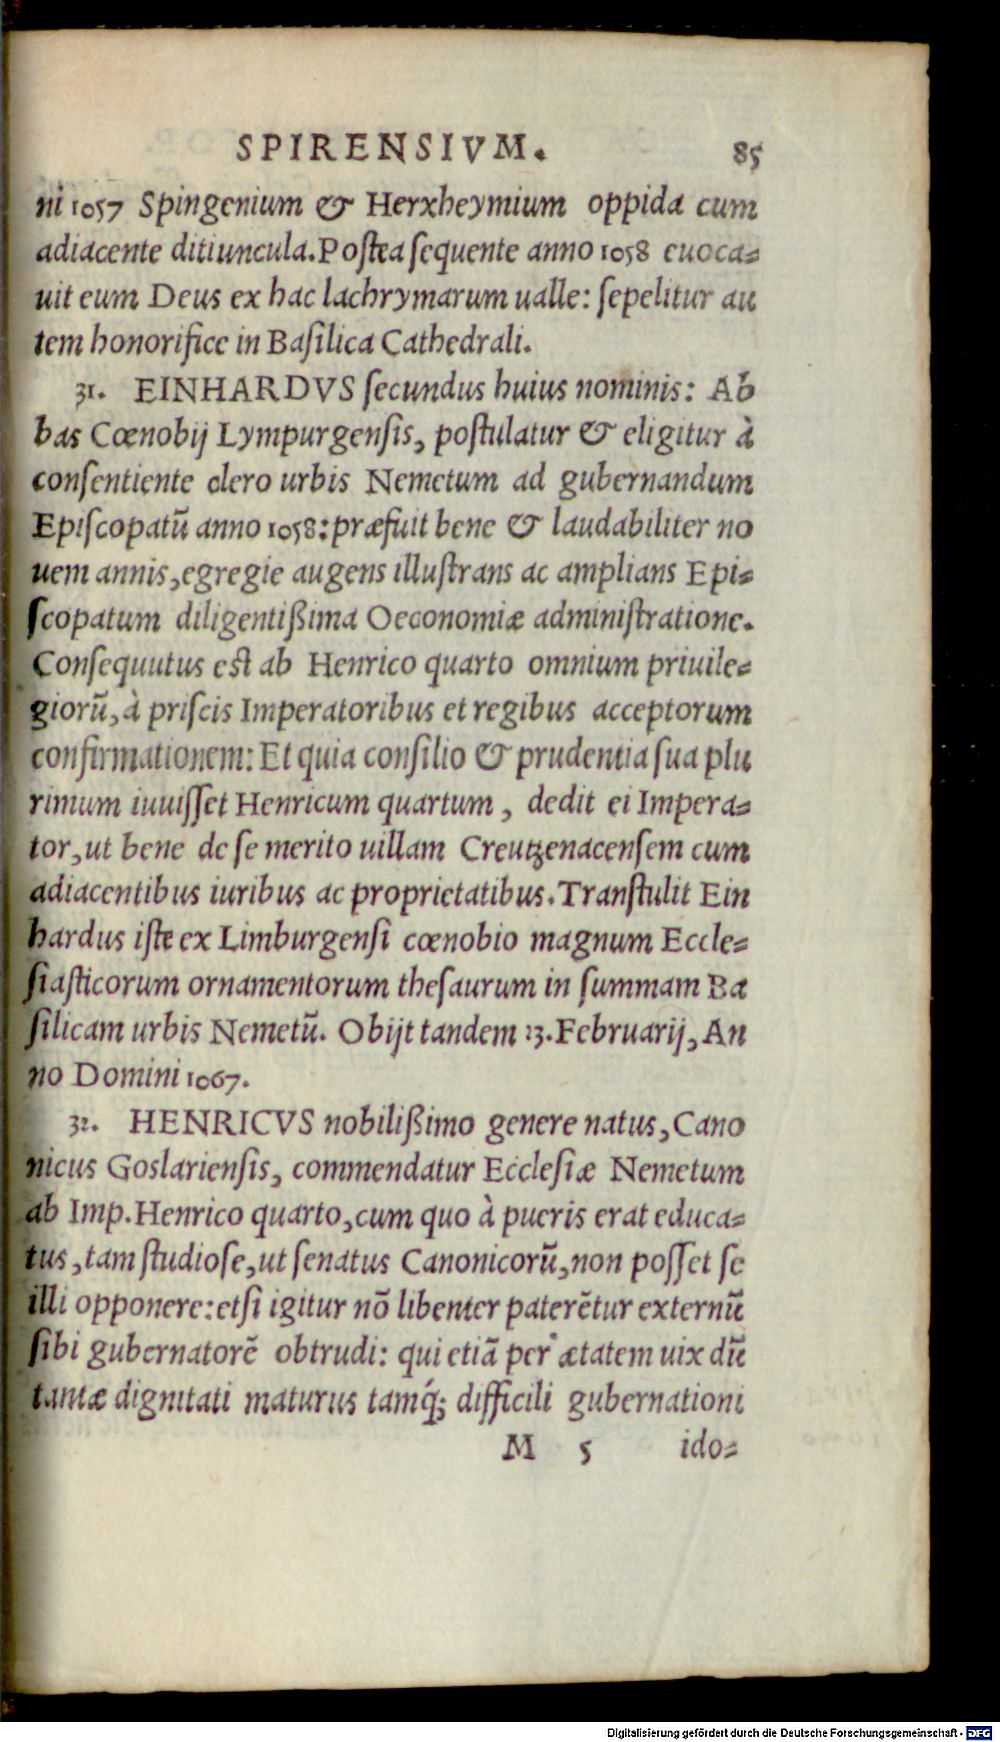 SPIRENSIVM. 85
ni 1057 Spingenium & Herxheymium oppida cum
adiacente ditiuncula. Postea sequente anno 1058 euoca=
uit eum Deus ex hac lachrymarum ualle: sepelitur au
tem honorifice in Basilica Cathedrali.
31. EINHARDVS secundus huius nominis: Ab
bas Cœnobij Lympurgensis, postulatur & eligitur à
consentiente clero urbis Nemetum ad gubernandum
Episcopatū anno 1058: præfuit bene & laudabiliter no
uem annis, egregie augens illustrans ac amplians Epi=
scopatum diligentißima Oeconomiæ administratione.
Consequutus est ab Henrico quarto omnium priuile=
giorū, à priscis Imperatoribus et regibus acceptorum
confirmationem: Et quia consilio & prudentia sua plu
rimum iuuisset Henricum quartum, dedit ei Impera=
tor, ut bene de se merito uillam Creutzenacensem cum
adiacentibus iuribus ac proprietatibus. Transtulit Ein
hardus iste ex Limburgensi cœnobio magnum Eccle=
siasticorum ornamentorum thesaurum in summam Ba
silicam urbis Nemetū. Obijt tandem 13. Februarij, An
no Domini 1067.
32. HENRICVS nobilißimo genere natus, Cano
nicus Goslariensis, commendatur Ecclesiæ Nemetum
ab Imp. Henrico quarto, cum quo à pueris erat educa=
tus, tam studiose, ut senatus Canonicorū, non posset se
illi opponere: etsi igitur nō libenter paterētur externū
sibi gubernatorē obtrudi: qui etiā per ætatem uix dū
tantæ dignitati maturus tamq́; difficili gubernationi
M 5 ido=
Digitalisierung gefördert durch die Deutsche Forschungsgemeinschaft - DFG